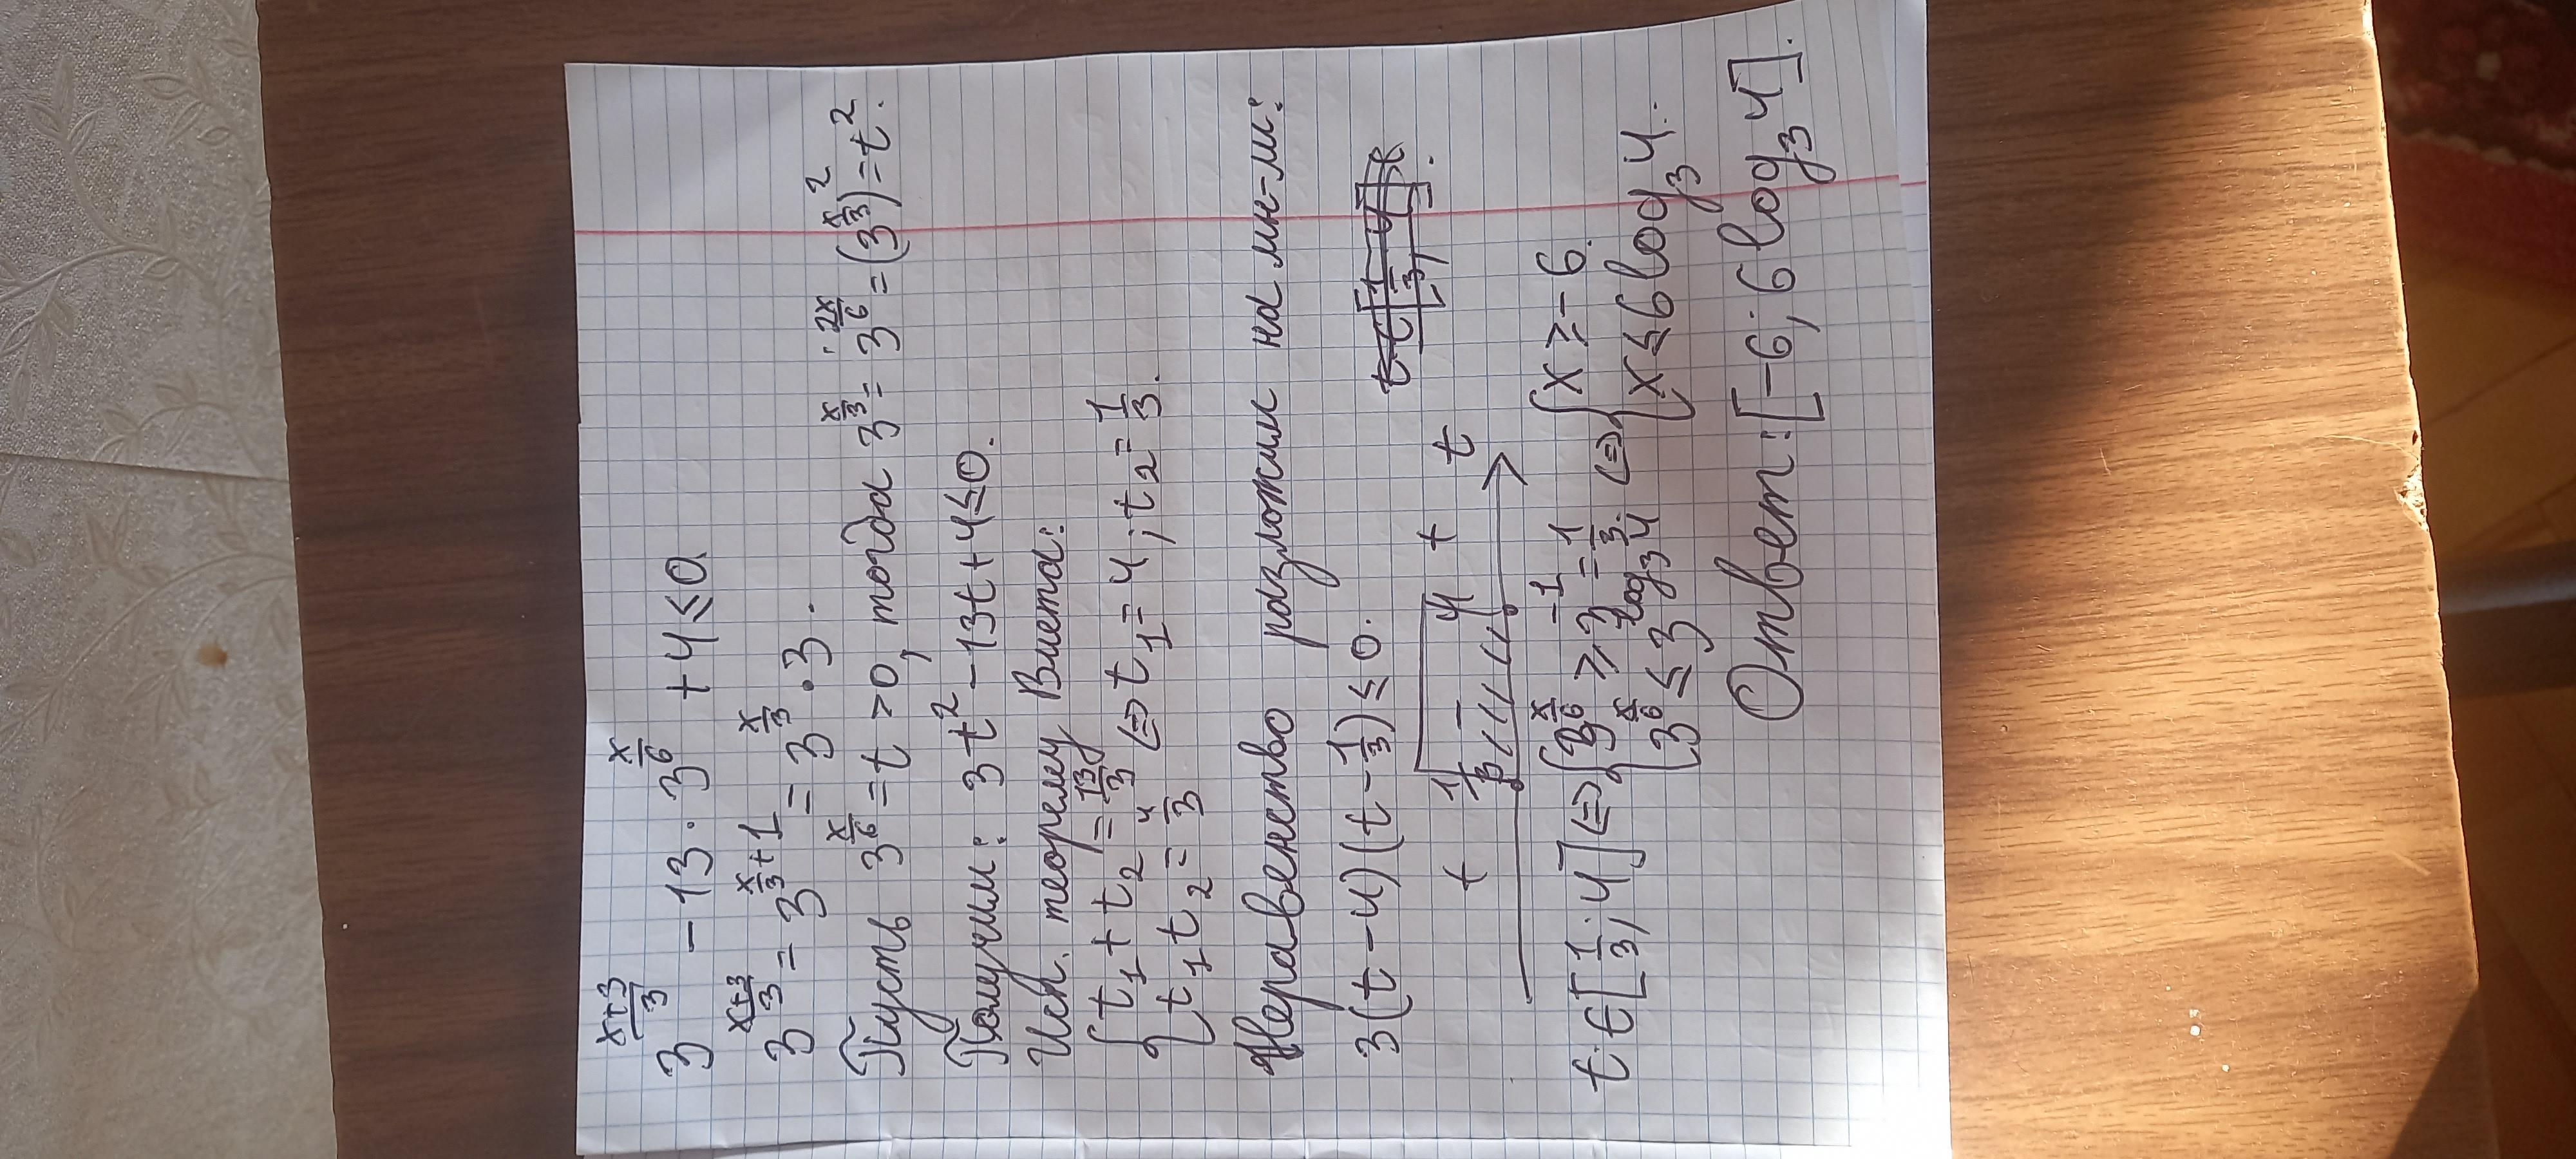 3^{\frac{x+3}{3}} - 13 · 3^{\frac{x}{6}} + 4 ≤ 0
3^{\frac{x+3}{3}} = 3^{\frac{x}{3}+1} = 3^{\frac{x}{3}} · 3.
Пусть 3^{\frac{x}{6}} = t > 0, тогда 3^{\frac{x}{3}} = 3^{\frac{2x}{6}} = (3^{\frac{x}{3}})^2 = t^2.
Получим: 3t^2 - 13t + 4 ≤ 0.
Исп. теорему Виета:
{ t_1 + t_2 = \frac{13}{3}
{ t_1 t_2 = \frac{4}{3} <=> t_1 = 4; t_2 = \frac{1}{3}.
Неравенство разложим на мн-ли:
3(t - 4)(t - \frac{1}{3}) ≤ 0.
+ \frac{1}{3} - 4 + t
t ∈ [\frac{1}{3}; 4] <=> { 3^{\frac{x}{6}} ≥ 3^{-1} <=> { x ≥ -6.
{ 3^{\frac{x}{6}} ≤ 3^{log_3 4} { x ≤ 6 log_3 4.
Ответ: [-6; 6 log_3 4].